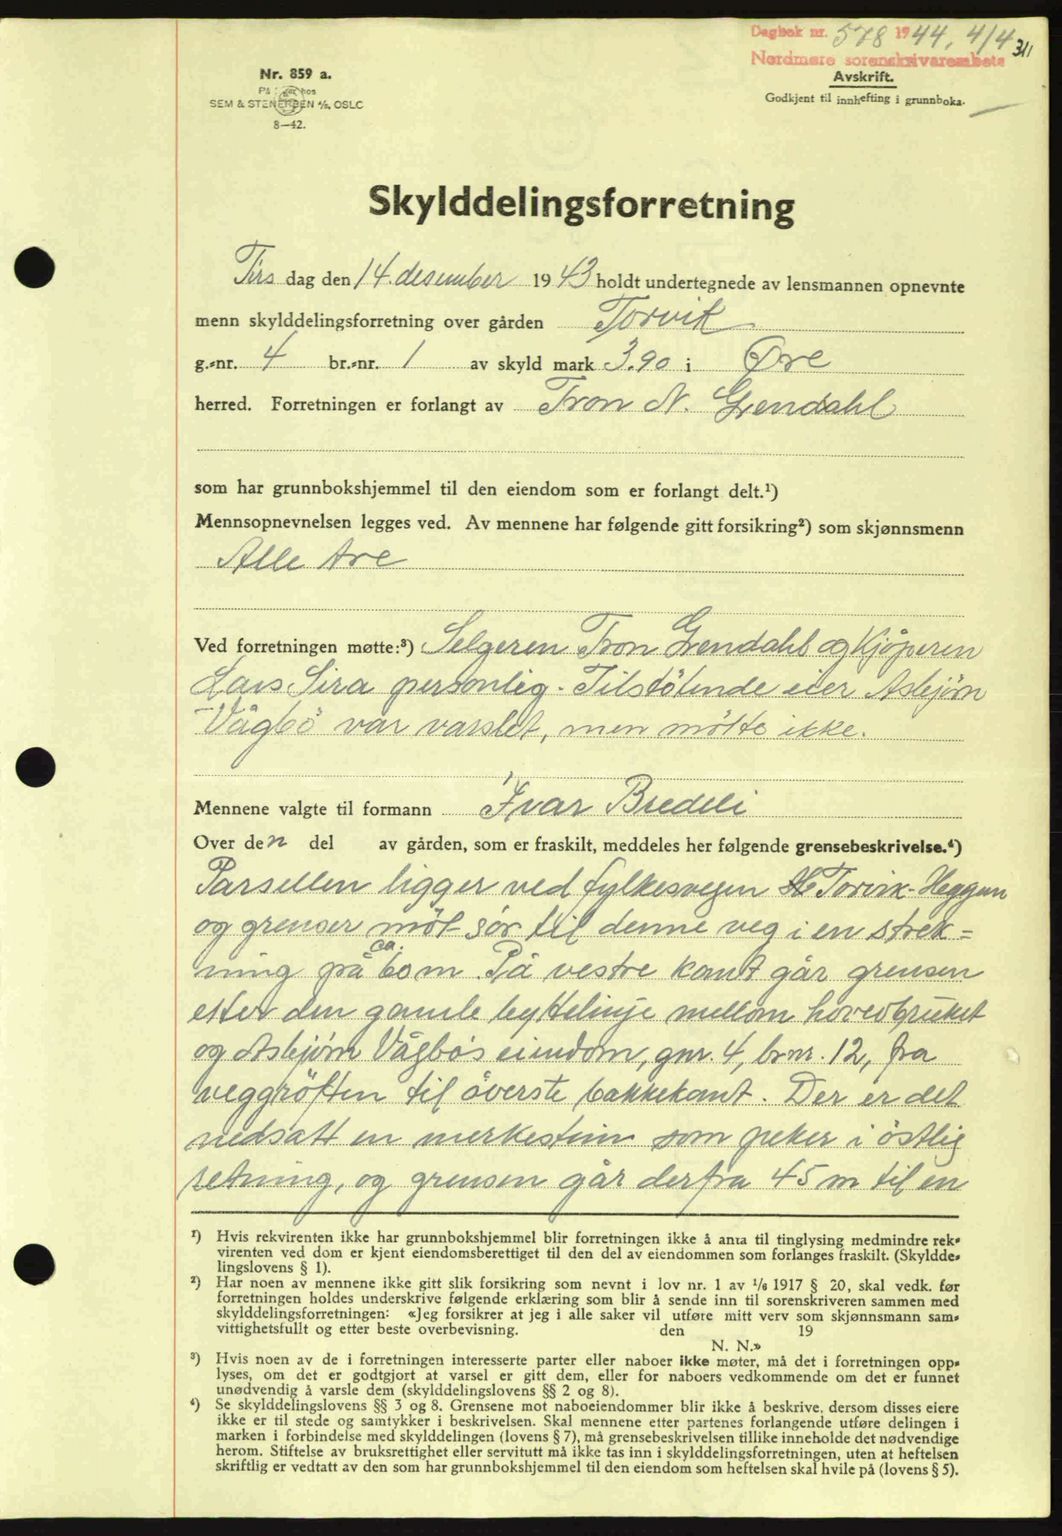 Dagbok nr. 578 1944, 4/4 311
Nordmøre sorenskrivarembete
Nr. 859 a.
Avskrift.
SEM & STENERSEN A/S, OSLO
Godkjent til innhefting i grunnboka.
8—42.
Skylddelingsforretning
Tirs dag den 14. desember 1943 holdt undertegnede av lensmannen opnevnte
menn skylddelingsforretning over gården Torvik
g.-nr. 4 br.-nr. 1 av skyld mark 3.90 i Øre
herred. Forretningen er forlangt av Tron N. Grendahl
som har grunnbokshjemmel til den eiendom som er forlangt delt.¹)
Mennsopnevnelsen legges ved. Av mennene har følgende gitt forsikring²) som skjønnsmenn
Alle tre
Ved forretningen møtte:³) Selgeren Tron Grendahl og Kjøperen
Lars Sira personlig. Tilstøtende eier Asbjørn
Vågbø var varslet, men møtte ikke.
Mennene valgte til formann Ivar Bredeli
Over den del av gården, som er fraskilt, meddeles her følgende grensebeskrivelse.⁴)
Parsellen ligger ved fylkesvegen Torvik-Heggem
og grenser möt sør til denne veg i en strek=
ning på ca. 60 m. På vestre kant går grensen
etter den gamle byttelinje mellom hovedbruket
og Asbjørn Vågbø's eiendom, gnr. 4, brnr. 12, fra
veggrøften til øverste bakkekant. Der er det
nedsatt en merkestein som peker i østlig
retning, og grensen går derfra 45 m til en
¹) Hvis rekvirenten ikke har grunnbokshjemmel blir forretningen ikke å anta til tinglysing medmindre rek-
virenten ved dom er kjent eiendomsberettiget til den del av eiendommen som forlanges fraskilt. (Skyldde-
lingslovens § 1).
²) Har noen av mennene ikke gitt slik forsikring som nevnt i lov nr. 1 av 1/6 1917 § 20, skal vedk. før
forretningen holdes underskrive følgende erklæring som blir å sende inn til sorenskriveren sammen med
skylddelingsforretningen: «Jeg forsikrer at jeg i alle saker vil utføre mitt verv som skjønnsmann sam-
vittighetsfullt og etter beste overbevisning. den 19
N. N.»
³) Hvis noen av de i forretningen interesserte parter eller naboer ikke møter, må det i forretningen opp-
lyses, om det er godtgjort at varsel er gitt dem, eller for naboers vedkommende om det er funnet
unødvendig å varsle dem (skylddelingslovens §§ 2 og 8).
⁴) Se skylddelingslovens §§ 3 og 8. Grensene mot naboeiendommer blir ikke å beskrive, dersom disses eiere
ikke er til stede og samtykker i beskrivelsen. Skal mennene etter partenes forlangende utføre delingen i
marken i forbindelse med skylddelingen (lovens § 7), må grensebeskrivelsen tillike inneholde det nødvendige
herom. Stiftelse av bruksrettighet eller servitutt må ikke tas inn i skylddelingsforretningen, uten at heftelsen
skriftlig er vedtatt av den som har grunnbokshjemmel til den eiendom som heftelsen skal hvile på (lovens § 5).